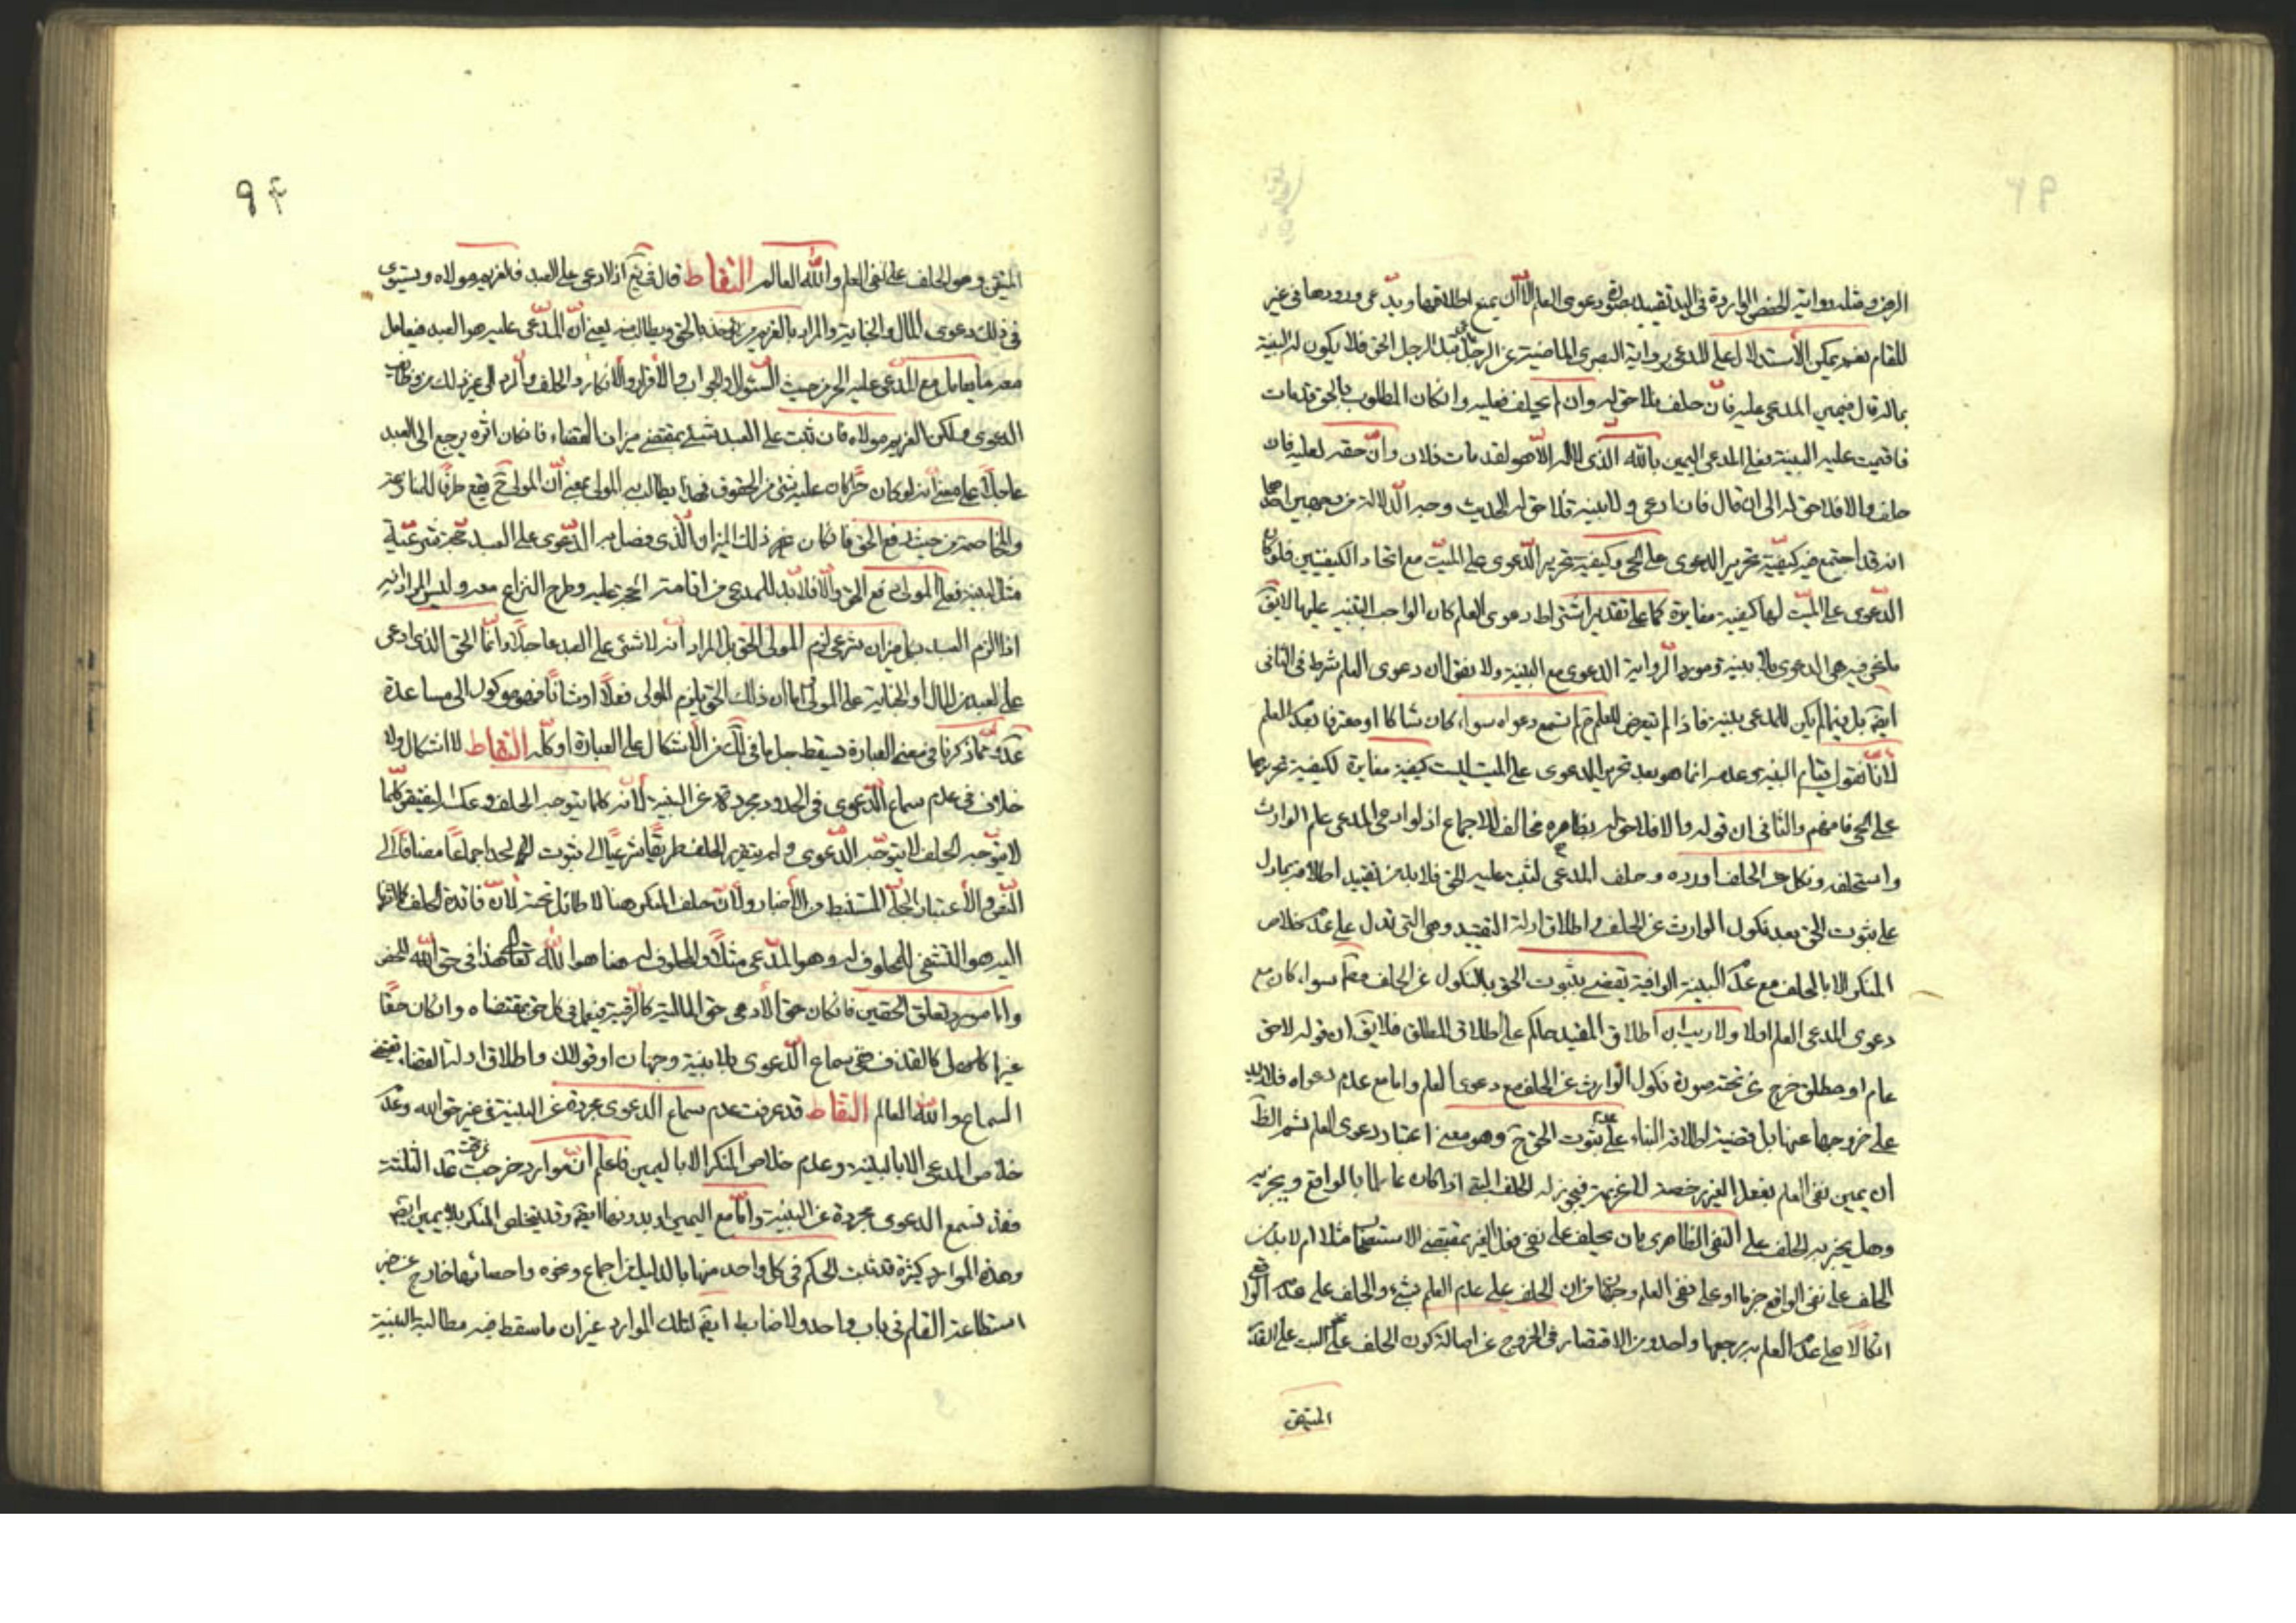 للمقام نعم يمكن الاستدلال على المدعى برواية البصرى الماضية عن الرجل قبل الرجل الحق فلا يكون له البينة
بماله قال فيمين المدعى عليه فان حلف فلا حق له وان لم يحلف فعليه وان كان المطلوب بالحق قد مات
فاقيمت عليه البينة فعلى المدعى اليمين بالله الذى لا اله الا هو لقد مات فلان وان حقه لعليه فان
حلف والا فلا حق له الى ان قال فان ادعى ولا بينة فلا حق له الحديث وجه الدلالة من وجهين احدهما
انه قد اجتمع فيه كيفية تحرير الدعوى على الحى وكيفية تحرير الدعوى على الميت مع اتحاد الكيفيتين فلو كان
الدعوى على الميت لها كيفية مغايرة كما على تقدير اشتراط دعوى العلم كان الواجب التنبيه عليها لا يق
ما نحن فيه هى الدعوى بلا بينة ومورد الرواية الدعوى مع البينة ولا يفق ان دعوى العلم شرط فى الثانى
ايض بل فيما لم يكن للمدعى بينة فاذا لم يتعرض للعلم لم تسمع دعواه سواء كان شاكا او معترفا بعدم العلم
لانا نقول قيام البينة وعدمه انما هو بعد تحرير الدعوى على الميت ليست كيفية مغايرة لكيفية تحريرها
على الحى فافهم والثانى ان قوله والا فلا حق له بظاهره مخالف للاجماع اذ لو ادعى المدعى علم الوارث
واستحلفه ونكل عن الحلف او رده وحلف المدعى لثبت عليه الحق فلا بد من تقييد اطلاقه بما دل
على ثبوت الحق بعد نكول الوارث عن الحلف واطلاق ادلة التقييد وهى التى تدل على عدم خلاص
المنكر الا بالحلف مع عدم البينة الوافية يقضى بثبوت الحق بالنكول عن الحلف مطم سواء كان مع
دعوى المدعى العلم اولا ولا ريب ان اطلاق المقيد حاكم على اطلاق المطلق فلا يق ان قوله لا حق
عام او مطلق خرج عن تحته صورة نكول الوارث عن الحلف مع دعوى العلم واما مع عدم دعواه فلا دليل
على خروجها عنها بل قضية اطلاقه البناء على عدم ثبوت الحق ح وهو معنى اعتبار دعوى العلم ثم الظ
ان يمين نفى العلم بفعل الغير رخصة لا عزيمة فيجوز له الحلف البتى اذا كان عالما بالواقع ويجزيه
وهل يجزيه الحلف على النفى الظاهرى بان يحلف على نفى فعل الغير بمقتضى الاستصحاب مثلا ام لا بد من
الحلف على نفى الواقع جزما او على نفى العلم وجهان من ان الحلف على عدم العلم بشىء والحلف على عدم الواقع
اتكالا على عدم العلم به مرجعها واحد ومن الاقتصار فى الخروج عن اصالة كون الحلف على البت على القدر
المتيقن
٩٤
المتيقن وهو الحلف على نفى العلم والله العالم التقاط قال فى يع اذا ادعى على العبد فالغريم مولاه ويستوى
فى ذلك دعوى المال والجناية والمراد بالغريم من يؤخذ بالحق ويطالب منه يعنى ان المدعى عليه هو العبد فيعامل
معه ما يعامل مع المدعى عليه الحر من حيث السئوال والجواب والاقرار والانكار والحلف والرد الى غير ذلك من وظائف
الدعوى ولكن الغريم مولاه فان ثبت على العبد شىء بمقتضى ميزان القضاء فان كان اثره يرجع الى العبد
عاجلا على معنى انه لو كان حرا كان عليه شىء من الحقوق فهذا يطالب به المولى بمعنى ان المولى ح يقع طرفا للمنازعة
والمخاصمة من حيث دفع الحق فان كان عن ذلك الميزان الذى فصل به الدعوى على العبد حجة شرعية
مثل البينة فعلى المولى دفع الحق والا فلا بد للمدعى من اقامة الحجة عليه وطرح النزاع معه وليس المراد انه
اذا الزم العبد بميزان شرعى لزم المولى الحق بل المراد انه لا شئ على العبد عاجلا وانما الحق الذى ادعى
على العبد من المال او الجناية على المولى اما ان ذلك الحق يلزم المولى فعلا او شانا فهو موكول الى مساعدة
خلاف فى عدم سماع الدعوى فى الحدود مجردة عن البينة لانه كلما يتوجه الحلف وعكسه النقيض كلما
لا يتوجه الحلف لا يتوجه الدعوى ولم يتقرر الحلف طريقا شرعيا الى ثبوت الحد اجماعا مضافا الى
النص والاعتبار الجلى المستنبط من الاخبار ولان حلف المنكر هنا لا طائل تحته لان فائدة الحلف
اليه هو التشفى للمحلوف له وهو المدعى مثلا والمحلوف له هنا هو الله تعالى هذا فى حق الله المحض
واما مورد تعلق الحقين فان كان حق الآدمى حق المالية كالسرقة فيعمل فى كل حق بمقتضاه وان كان حقا
غير مالى كالقذف ففى سماع الدعوى بلا بينة وجهان او قولان واطلاق ادلة القضاء يقتضى
السماع والله العالم التقاط قد عرفت عدم سماع الدعوى مجردة عن البينة فى غير حق الله وعدم
خلاص المدعى الا بالبينة وعدم خلاص المنكر الا باليمين فاعلم ان موارد خرجت عن تحت هذه الثلثة
فقد تسمع الدعوى مجردة عن البينة واما مع اليمين او بدونها ايض وقد يتخلص المنكر بلا يمين ايض
وهذه الموارد كثيرة قد ثبت الحكم فى كل واحد منها بالدليل من اجماع ونحوه واحصائها خارج عن
استطاعة القلم فى باب واحد ولا ضابط ايض لتلك الموارد غير ان ما سقط فيه مطالبة البينة